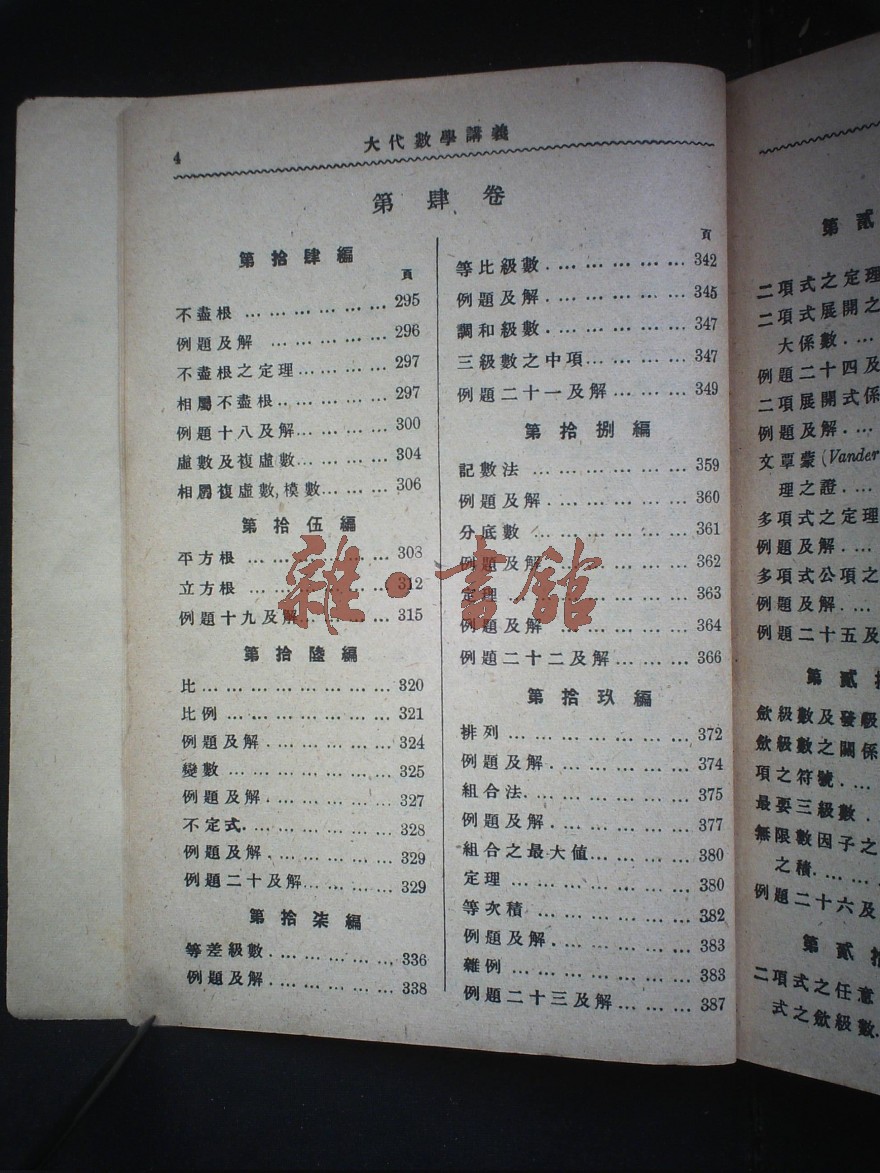 4
大代數學講義
第肆卷
第拾肆編
頁
不盡根 ... ... ... ... ... 295
例題及解 ... ... ... ... 296
不盡根之定理... ... ... 297
相屬不盡根... ... ... ... 297
例題十八及解... ... ... 300
虛數及複虛數... ... ... 304
相屬複虛數,模數... ... 306
第拾伍編
平方根 ... ... ... ... ... 308
立方根 ... ... ... ... ... 312
例題十九及解... ... ... 315
第拾陸編
比... ... ... ... ... ... ... 320
比例 ... ... ... ... ... ... 321
例題及解. ... ... ... ... 324
變數 ... ... ... ... ... ... 325
例題及解. ... ... ... ... 327
不定式. ... ... ... ... ... 328
例題及解. ... ... ... ... 329
例題二十及解... ... ... 329
第拾柒編
等差級數. ... ... ... ... 336
例題及解. ... ... ... ... 338
頁
等比級數. ... ... ... ... 342
例題及解. ... ... ... ... 345
調和級數. ... ... ... ... 347
三級數之中項... ... ... 347
例題二十一及解 ... ... 349
第拾捌編
記數法 ... ... ... ... ... 359
例題及解. ... ... ... ... 360
分底數 ... ... ... ... ... 361
例題及解 ... ... ... ... 362
定理 ... ... ... ... ... ... 363
例題及解 ... ... ... ... 364
例題二十二及解 ... ... 366
第拾玖編
排列 ... ... ... ... ... ... 372
例題及解. ... ... ... ... 374
組合法. ... ... ... ... ... 375
例題及解. ... ... ... ... 377
組合之最大値... ... ... 380
定理 ... ... ... ... ... ... 380
等次積 ... ... ... ... ... 382
例題及解. ... ... ... ... 383
雜例 ... ... ... ... ... ... 383
例題二十三及解 ... ... 387
雜·書館
第貳
二項式之定理
二項式展開之
大係數. ...
例題二十四及
二項展開式係
例題及解. ...
文覃蒙 (Vander
理之證. ...
多項式之定理
例題及解. ...
多項式公項之
例題及解. ...
例題二十五及
第貳
斂級數及發
斂級數之關係
項之符號. ...
最要三級數 .
無限數因子之
之積. ...
例題二十六及
第貳
二項式之任意
式之斂級數.